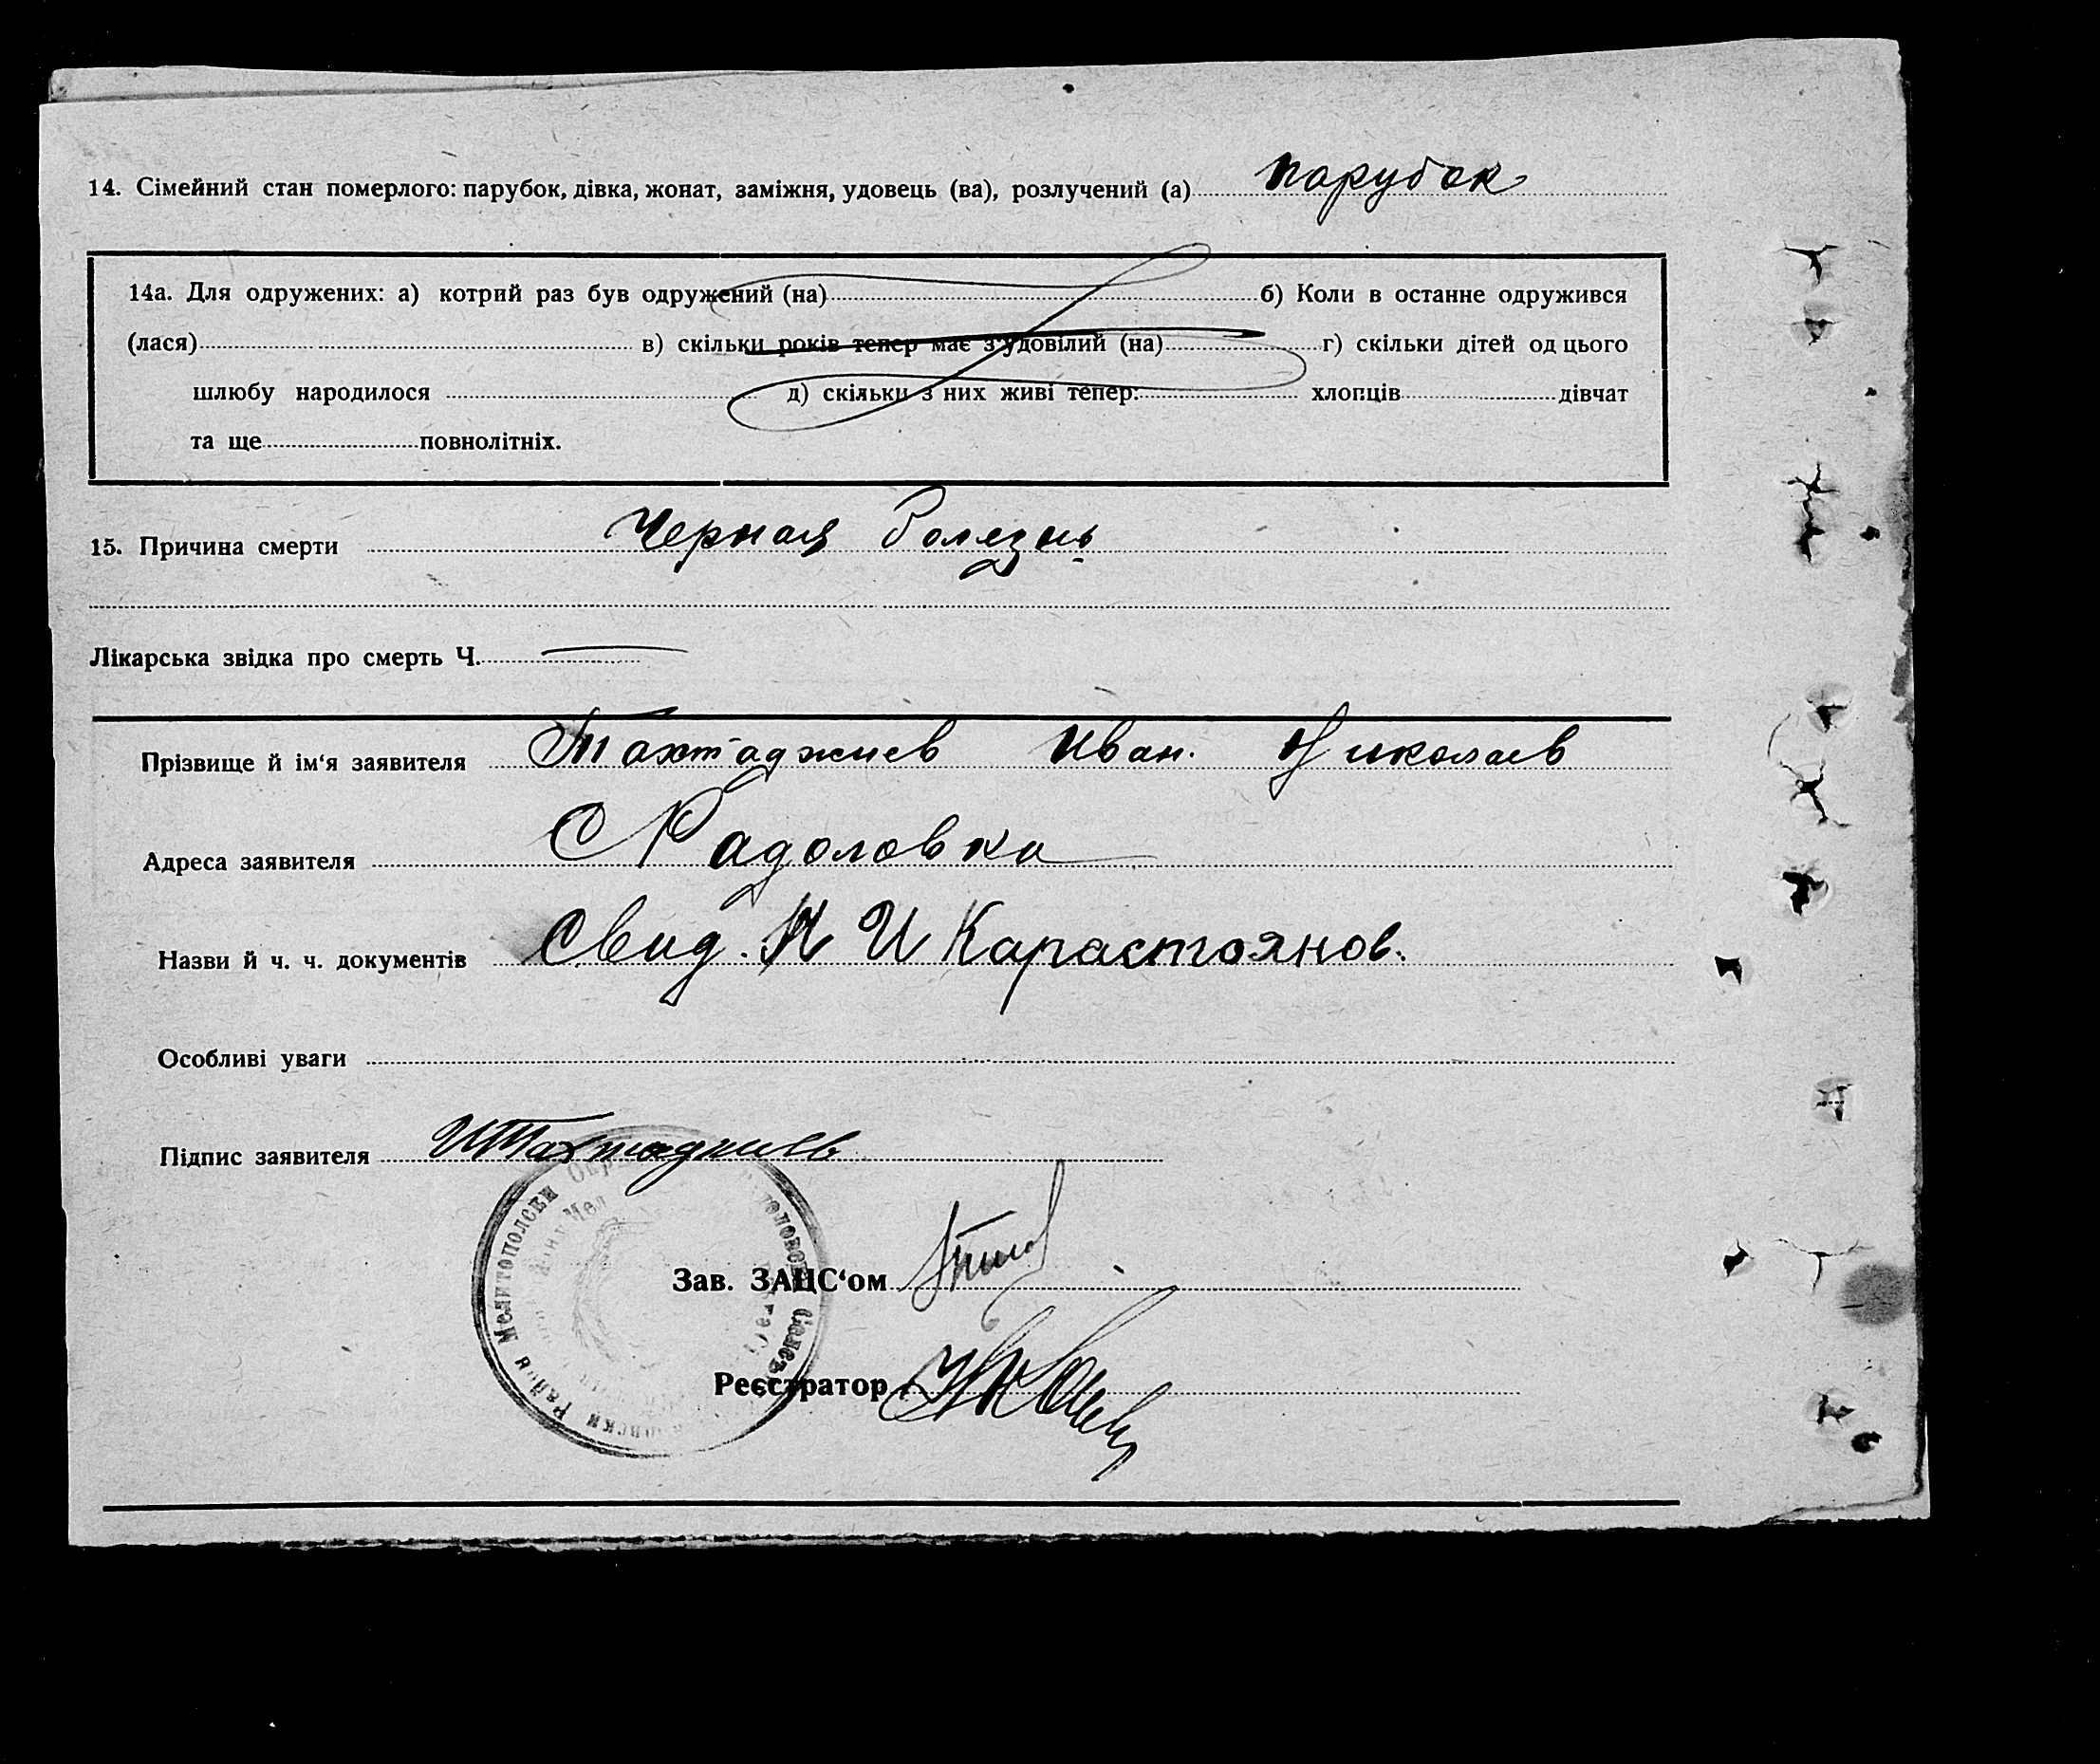 14. Сімейний стан померлого: парубок, дівка, жонат, заміжня, удовець (ва), розлучений (а) парубок
14а. Для одружених: а) котрий раз був одружений (на) б) Коли в останне одружився
(лася) в) скільки років тепер має з'удовілий (на) г) скільки дітей од цього
шлюбу народилося д) скільки з них живі тепер: хлопців дівчат
та ще повнолітніх.
15. Причина смерти Черная болезнь
Лікарська звідка про смерть Ч.
Прізвище й ім'я заявителя Тахтаджиев Иван. Николаев
Адреса заявителя С Радоловка
Назви й ч. ч. документів Свид. К И Карастоянов.
Особливі уваги
Підпис заявителя ИТахтаджиев
Мелитополски
Зав. ЗАЦС'ом
Реєстратор